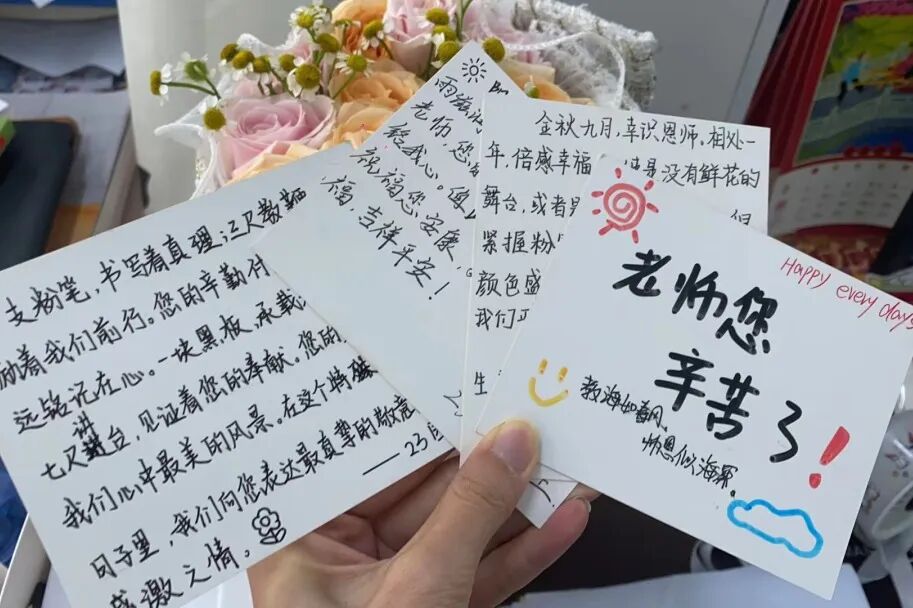 支粉笔，书写着真理；三尺教鞭
励着我们前行。您的辛勤付
远铭记在心。一块黑板，承载
七尺讲台，见证着您的奉献。您的
我们心中最美的风景。在这个特殊
日子里，我们向您表达最真挚的敬意
感激之情。
——23
雨滋
老师，您
铭心。
祝福您安康，
福，吉祥平安！
金秋九月，幸识恩师，相处一
年，倍感幸福 没有鲜花的
舞台，或者
紧握粉
颜色盛
我们
生
Happy every days
老师您
辛苦了！
教诲如春风，
师恩似海深